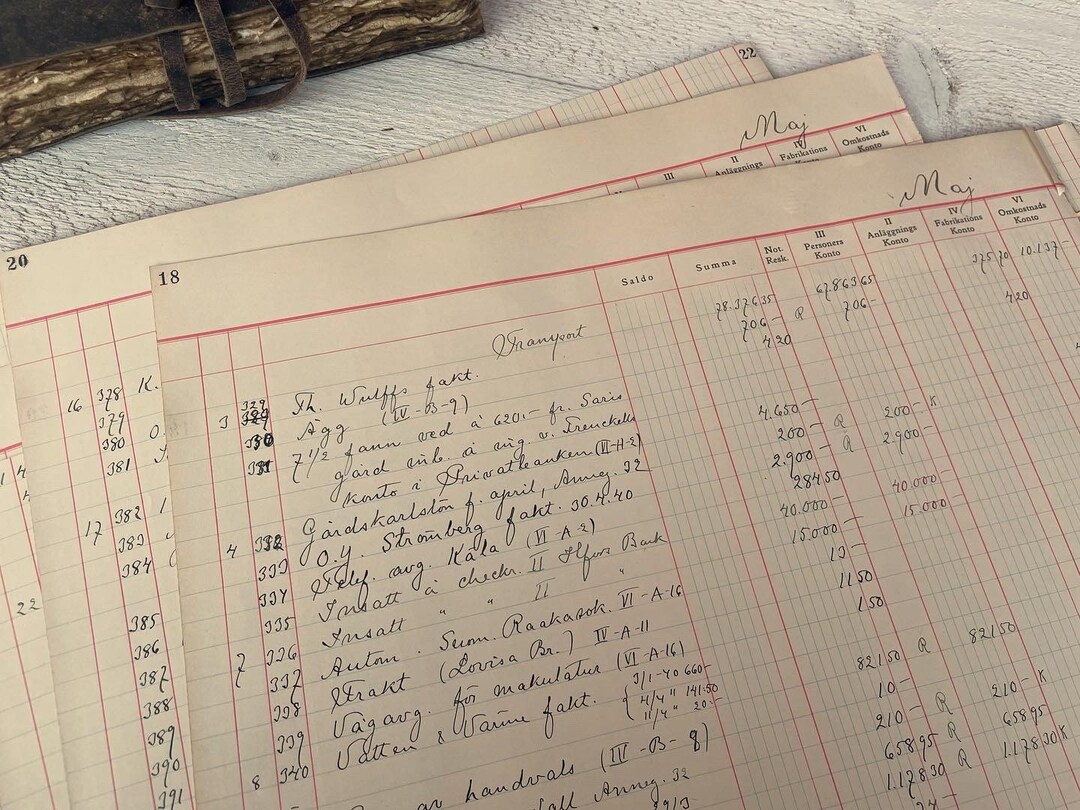 22
Maj
20
II
Anläggnings
III
IV
Fabrikations
Konto
VI
Omkostnads
Konto
18
Maj
Saldo
Summa
Not.
Resk.
III
Personers
Konto
II
Anläggnings
Konto
IV
Fabrikations
Konto
VI
Omkostnads
Konto
Transport 78.376 35 67.863 65 375 70 10.137 -
3 329 Th. Wulffs fakt. 706 - R 706 -
Ägg (IV-B-9) 4 20 4 20
7 1/2 famn ved à 620.- fr.
gård
konto i Privatbanken (VI-H-2) 4.650 -
Gårdskarlslön f. april, Anneg. 32 200 - R 200 - K
4 332 O.Y. Strömberg fakt. 30.4.40 2.900 - R 2.900 -
333 Telef. avg. Kåla (VI-A-2) 284 50
334 Insatt à checkr. II Hfors Bank 40.000 - 40.000 -
335 Insatt " " II " 15.000 - 15.000 -
7 336 Autom. Suom. Raakasok. VI-A-16 13 -
337 Frakt (Lovisa Br.) IV-A-11 11 50
338 Vägavg. för makulatur (VI-A-16) 1 50
339 Vatten & Värme fakt. 3/1-40 660-
4/4 " 141.50
11/4 " 20.- 821 50 R 821 50
8 340 10 -
handvals (IV-B-9) 210 - R 210 - K
Anneg. 32 658 95 R 658 95
1.178 30 R 1.178 30 K
16 378 K.
379
380 O.
381
17 382
383
384
385
386
387
388
389
390
391
22